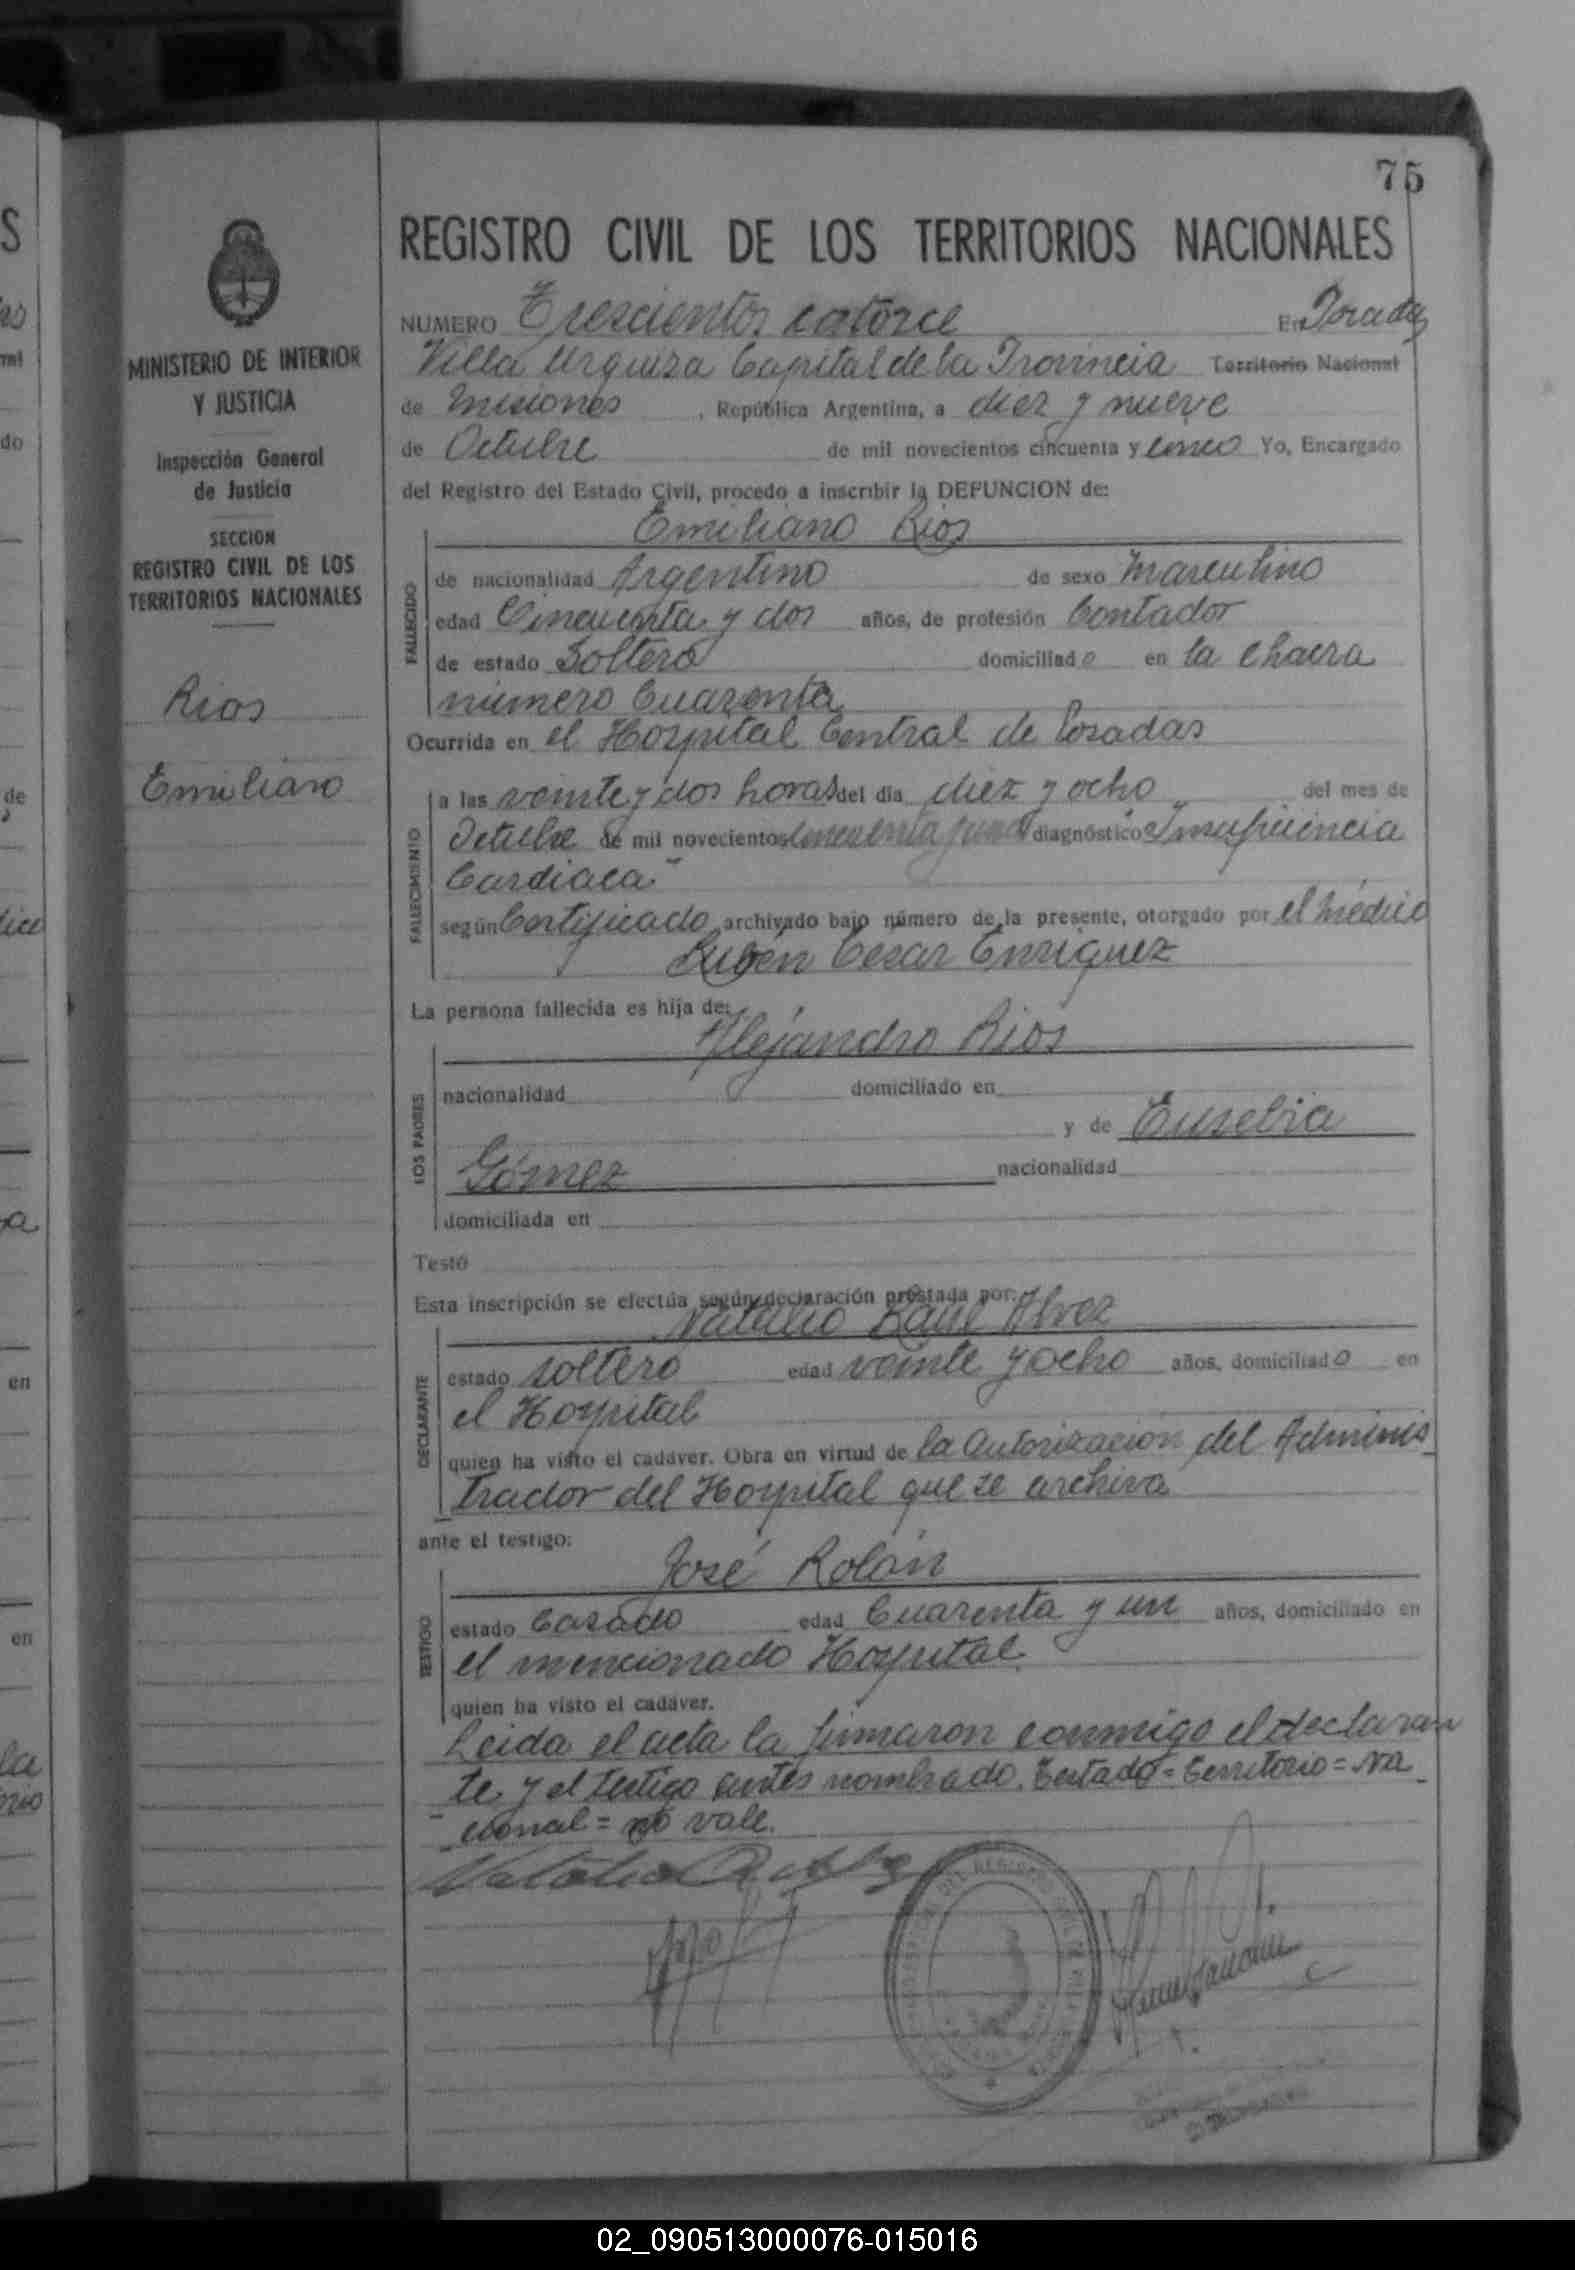 75
REGISTRO CIVIL DE LOS TERRITORIOS NACIONALES
MINISTERIO DE INTERIOR
Y JUSTICIA
Inspección General
de Justicia
SECCION
REGISTRO CIVIL DE LOS
TERRITORIOS NACIONALES
Rios
Emiliano
NUMERO Trescientos catorce En Posadas
Villa Urquiza Capital de la Provincia Territorio Nacional
de Misiones, República Argentina, a diez y nueve
de Octubre de mil novecientos cincuenta y cinco Yo, Encargado
del Registro del Estado Civil, procedo a inscribir la DEFUNCION de:
Emiliano Rios
FALLECIDO
de nacionalidad Argentino de sexo Masculino
edad Cincuenta y dos años, de profesión Contador
de estado Soltero domiciliado en la chacra
número Cuarenta
Ocurrida en el Hospital Central de Posadas
FALLECIMIENTO
a las veinte y dos horas del día diez y ocho del mes de
Octubre de mil novecientos diagnóstico "Insuficiencia
Cardiaca"
según Certificado archivado bajo número de la presente, otorgado por el médico
Rubén Cesar Enriquez
La persona fallecida es hija de:
Alejandro Rios
LOS PADRES
nacionalidad domiciliado en
y de Eusebia
Gómez nacionalidad
domiciliada en
Testó
Esta inscripción se efectúa según declaración prestada por:
Natalio Raúl Alvez
DECLARANTE
estado soltero edad veinte y ocho años, domiciliado en
el Hospital
quien ha visto el cadáver. Obra en virtud de la Autorización del Adminis
trador del Hospital que se archiva
ante el testigo:
José Rolón
TESTIGO
estado Casado edad Cuarenta y un años, domiciliado en
el mencionado Hospital
quien ha visto el cadáver.
Leida el acta la firmaron conmigo el declaran
te y el testigo antes nombrado. Testado = Territorio = Na
cional = no vale.
02_090513000076-015016